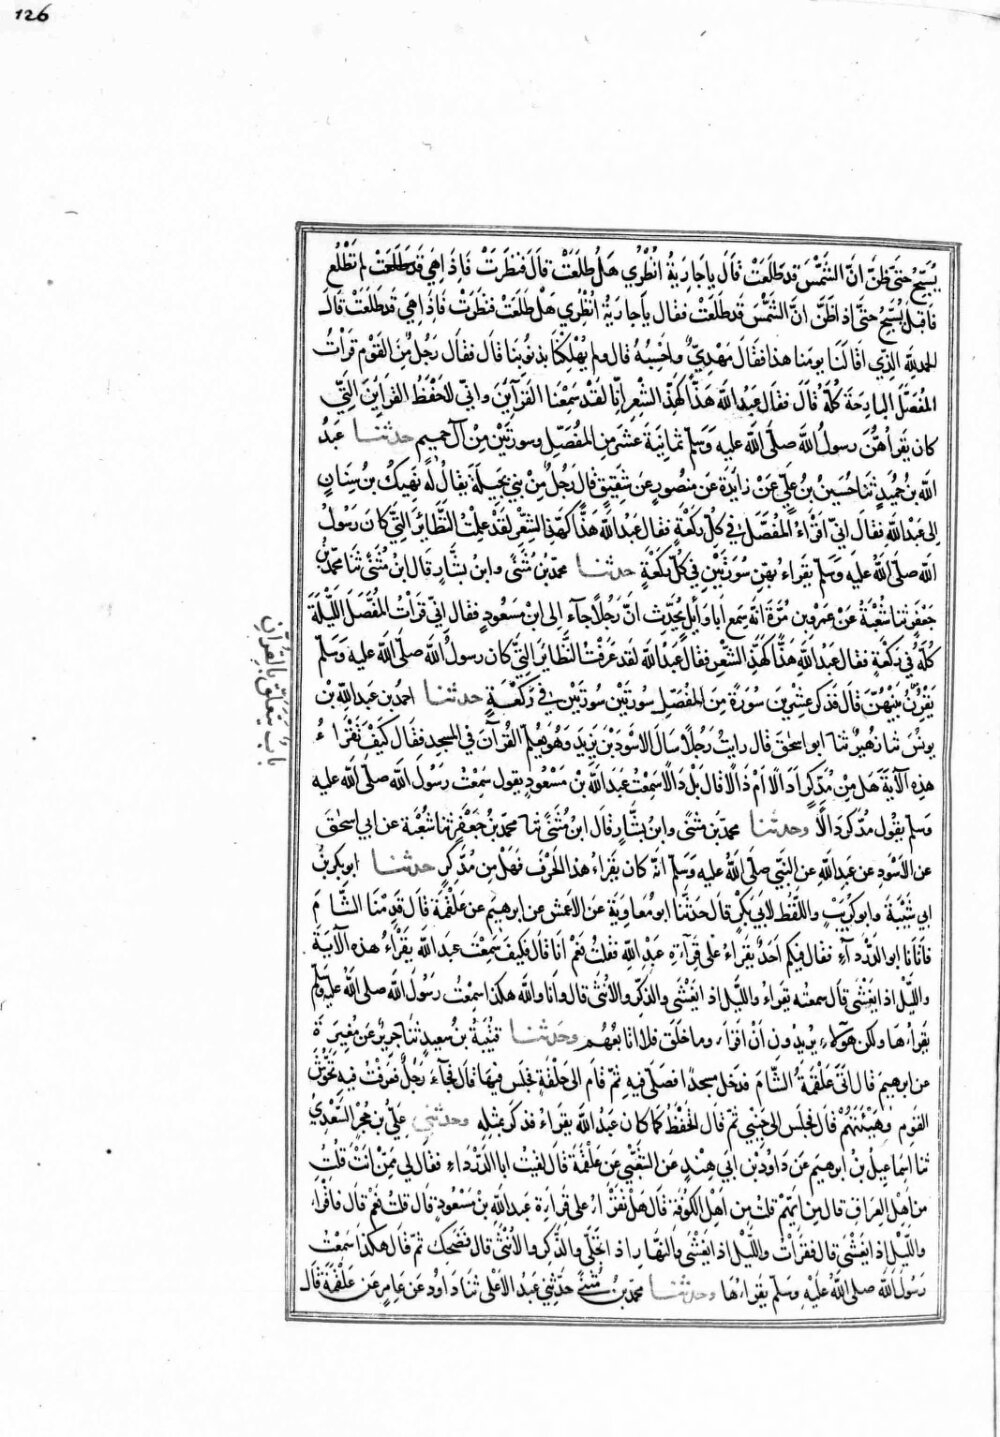 126
يُسَبِّحُ حتى ظنّ انّ الشَّمْسَ قد طلعَتْ قال يا جاريةُ انْظُري هَلْ طلعَتْ قال فنظرَتْ فاذا هي قد طلعت لم تَطْلُع
فاقبل يُسَبِّحُ حتى اذا ظنّ انّ الشَّمْسَ قد طلعَتْ فقال يا جاريةُ انْظُري هَلْ طلعَتْ فنظرَتْ فاذا هي قد طلعَتْ قال
الحمد لله الذي اقالنا يومنا هذا فقال مَهْديٌّ واحْسِبُهُ قال ولم يُهْلِكْنا بذنوبنا قال فقال رَجُلٌ مِنَ القَوْم قرأتُ
المُفَصَّلَ البارحَةَ كُلَّهُ قال فقال عبدُ الله هَذًّا كهَذِّ الشِّعر انّا لقد سَمِعْنا القرآئنَ وانّي لاحْفَظُ القرآئنَ التي
كان يَقرأهُنَّ رسولُ الله صلى الله عليه وسلم ثمانيةَ عشرَ من المُفصَّل وسورتَيْن مِنْ آل حميم حدثنا عبدُ
الله بن حُميدٍ ثنا حُسَيْنُ بن عليّ عَنْ زايدةَ عن منصورٍ عن شَقيقٍ قال جآءَ رَجُلٌ مِنْ بني بجيلة يقال لهُ نَهيكُ بن سِنانٍ
الى عبدالله فقال انّي اقْرَاءُ المُفصَّلَ في كلّ ركعَةٍ فقال عبدُ الله هَذًّا كهَذِّ الشِّعْر لقد علِمْتُ النظائرَ التي كان رسولُ
الله صلى الله عليه وسلم يقراءُ بهنّ سورَتَيْن في كلّ ركعةٍ حدثنا محمّد بن مُثَنى وابن بشّارٍ قال ابنُ مُثَنى ثنا محمّد بنُ
جَعْفَرٍ ثنا شُعْبَةُ عَنْ عمرو بن مُرَّةَ انّه سَمِعَ ابا وآئلٍ يُحَدِّثُ انّ رَجُلاً جآءَ الى ابن مَسعُودٍ فقال اِنّي قرأتُ المُفصَّلَ اللَّيلَةَ
كُلَّهُ في ركعَةٍ فقال عبدُ الله هَذًّا كهَذِّ الشِّعْر فقال عبدُ الله لقد عَرَفْتُ النَّظائرَ التي كان رسولُ الله صلى الله عليه وسلم
يَقْرُنُ بَيْنَهُنَّ قال فذكَر عشرينَ سُورةً مِنَ المُفصَّل سُورتَيْن سُورتَيْن في ركعَةٍ حدثنا احمدُ بن عبدالله بن
يونُسَ ثنا زهيرٌ ثنا ابو اسحٰق قال رايتُ رَجُلاً سأل الاسودَ بْنَ يزيدَ وهو يعلّمُ القُرْآنَ في المسجِد فقال كيفَ تَقْراءُ
هذه الآيةَ هل مِنْ مُدَّكِرٍ ادالًا امْ ذالًا قال بَلْ دالًا سَمِعْتُ عبدَ الله بن مَسْعُودٍ يقول سَمِعْتُ رسُولَ الله صلى الله عليه
وسلم يقُول مُدَّكِرٍ دالًا وحدثنا محمّدُ بن مثنى وابن بشّارٍ قال ابنُ مُثَنى ثنا محمّدُ بنُ جَعْفَرٍ ثنا شعْبَةُ عن ابي اسحٰقَ
عن الاسْوَدِ عن عبدالله عن النبي صلى الله عليه وسلم انّه كان يَقْراءُ هذا الحَرْفَ فهَلْ مِن مُدَّكِرٍ حدثنا ابو بكر بنُ
ابي شَيْبَةَ وابو كُرَيْبٍ واللَّفْظُ لابي بَكْرٍ قال حَدَّثنا ابو مُعاويةَ عن الاعمش عن ابرهيم عن علقمةَ قال قدِمْنا الشّامَ
فاتانا ابو الدَّردآءِ فقال افيكم احدٌ يَقراءُ على قرآءةِ عبْدِ الله فقلتُ نَعَمْ انا قال فكيفَ سَمِعْتَ عبدَ الله يَقْراءُ هذه الآيةَ
واللَّيْل اذا يَغْشى قال سمعته يَقْراءُ واللَّيْل اذا يَغْشى والذكر والانثى قال وانا والله هكذا سمِعْتُ رسُولَ الله صلى الله عليه وسلم
يَقْراءُها ولكن هؤلاءِ يُريدُون اَنْ اقراءَ وما خَلَق فلا اتابعُهُم وحدثنا قتيبةُ بن سعيدٍ ثنا جريرٌ عن مُغيرةَ
عن ابرهيم قال اتى علقمةُ الشّامَ فدخل مسجدًا فصلّى فيه ثمّ قامَ الى حلْقَةٍ فجلس فيها قال فجآءَ رَجُلٌ فعرفتُ فيه تحوُّشَ
القوم وهَيْئَتَهُمْ قال فجلسَ الى جَنْبي ثمّ قال اتحْفظُ كما كان عبدُ الله يقراءُ فذكر بمثله وحدثني عليُّ بن حُجْرٍ السَّعْديُّ
ثنا اسماعيلُ بنُ ابرهيم عن داودَ بن ابي هِنْدٍ عن الشَّعْبي عن علقمة قال لقيتُ ابا الدَّرداءِ فقال لي ممّن انْتَ قلتُ
من اهْل العِراق قال من ايّهِمْ قلتُ من اهْل الكوفة قال هَلْ تقراءُ على قراءةِ عبدالله بن مَسْعُودٍ قال قلتُ نَعَمْ قال فاقراء
واللَّيْل اذا يَغْشى قال فقرأتُ واللَّيْل اذا يَغْشى والنهار اذا تجَلّى والذَّكر والأنثى قال فضَحِكَ ثمّ قال هكذا سَمِعْتُ
رَسُولَ الله صلى الله عَلَيْهِ وسلم يَقراءُها وحدثنا محمّدُ بنُ مُثَنى حدَّثني عبدُ الاعلى ثنا داوُد عن عامِرٍ عن علقَمَةَ قال
باب يتعلق بالقرآن